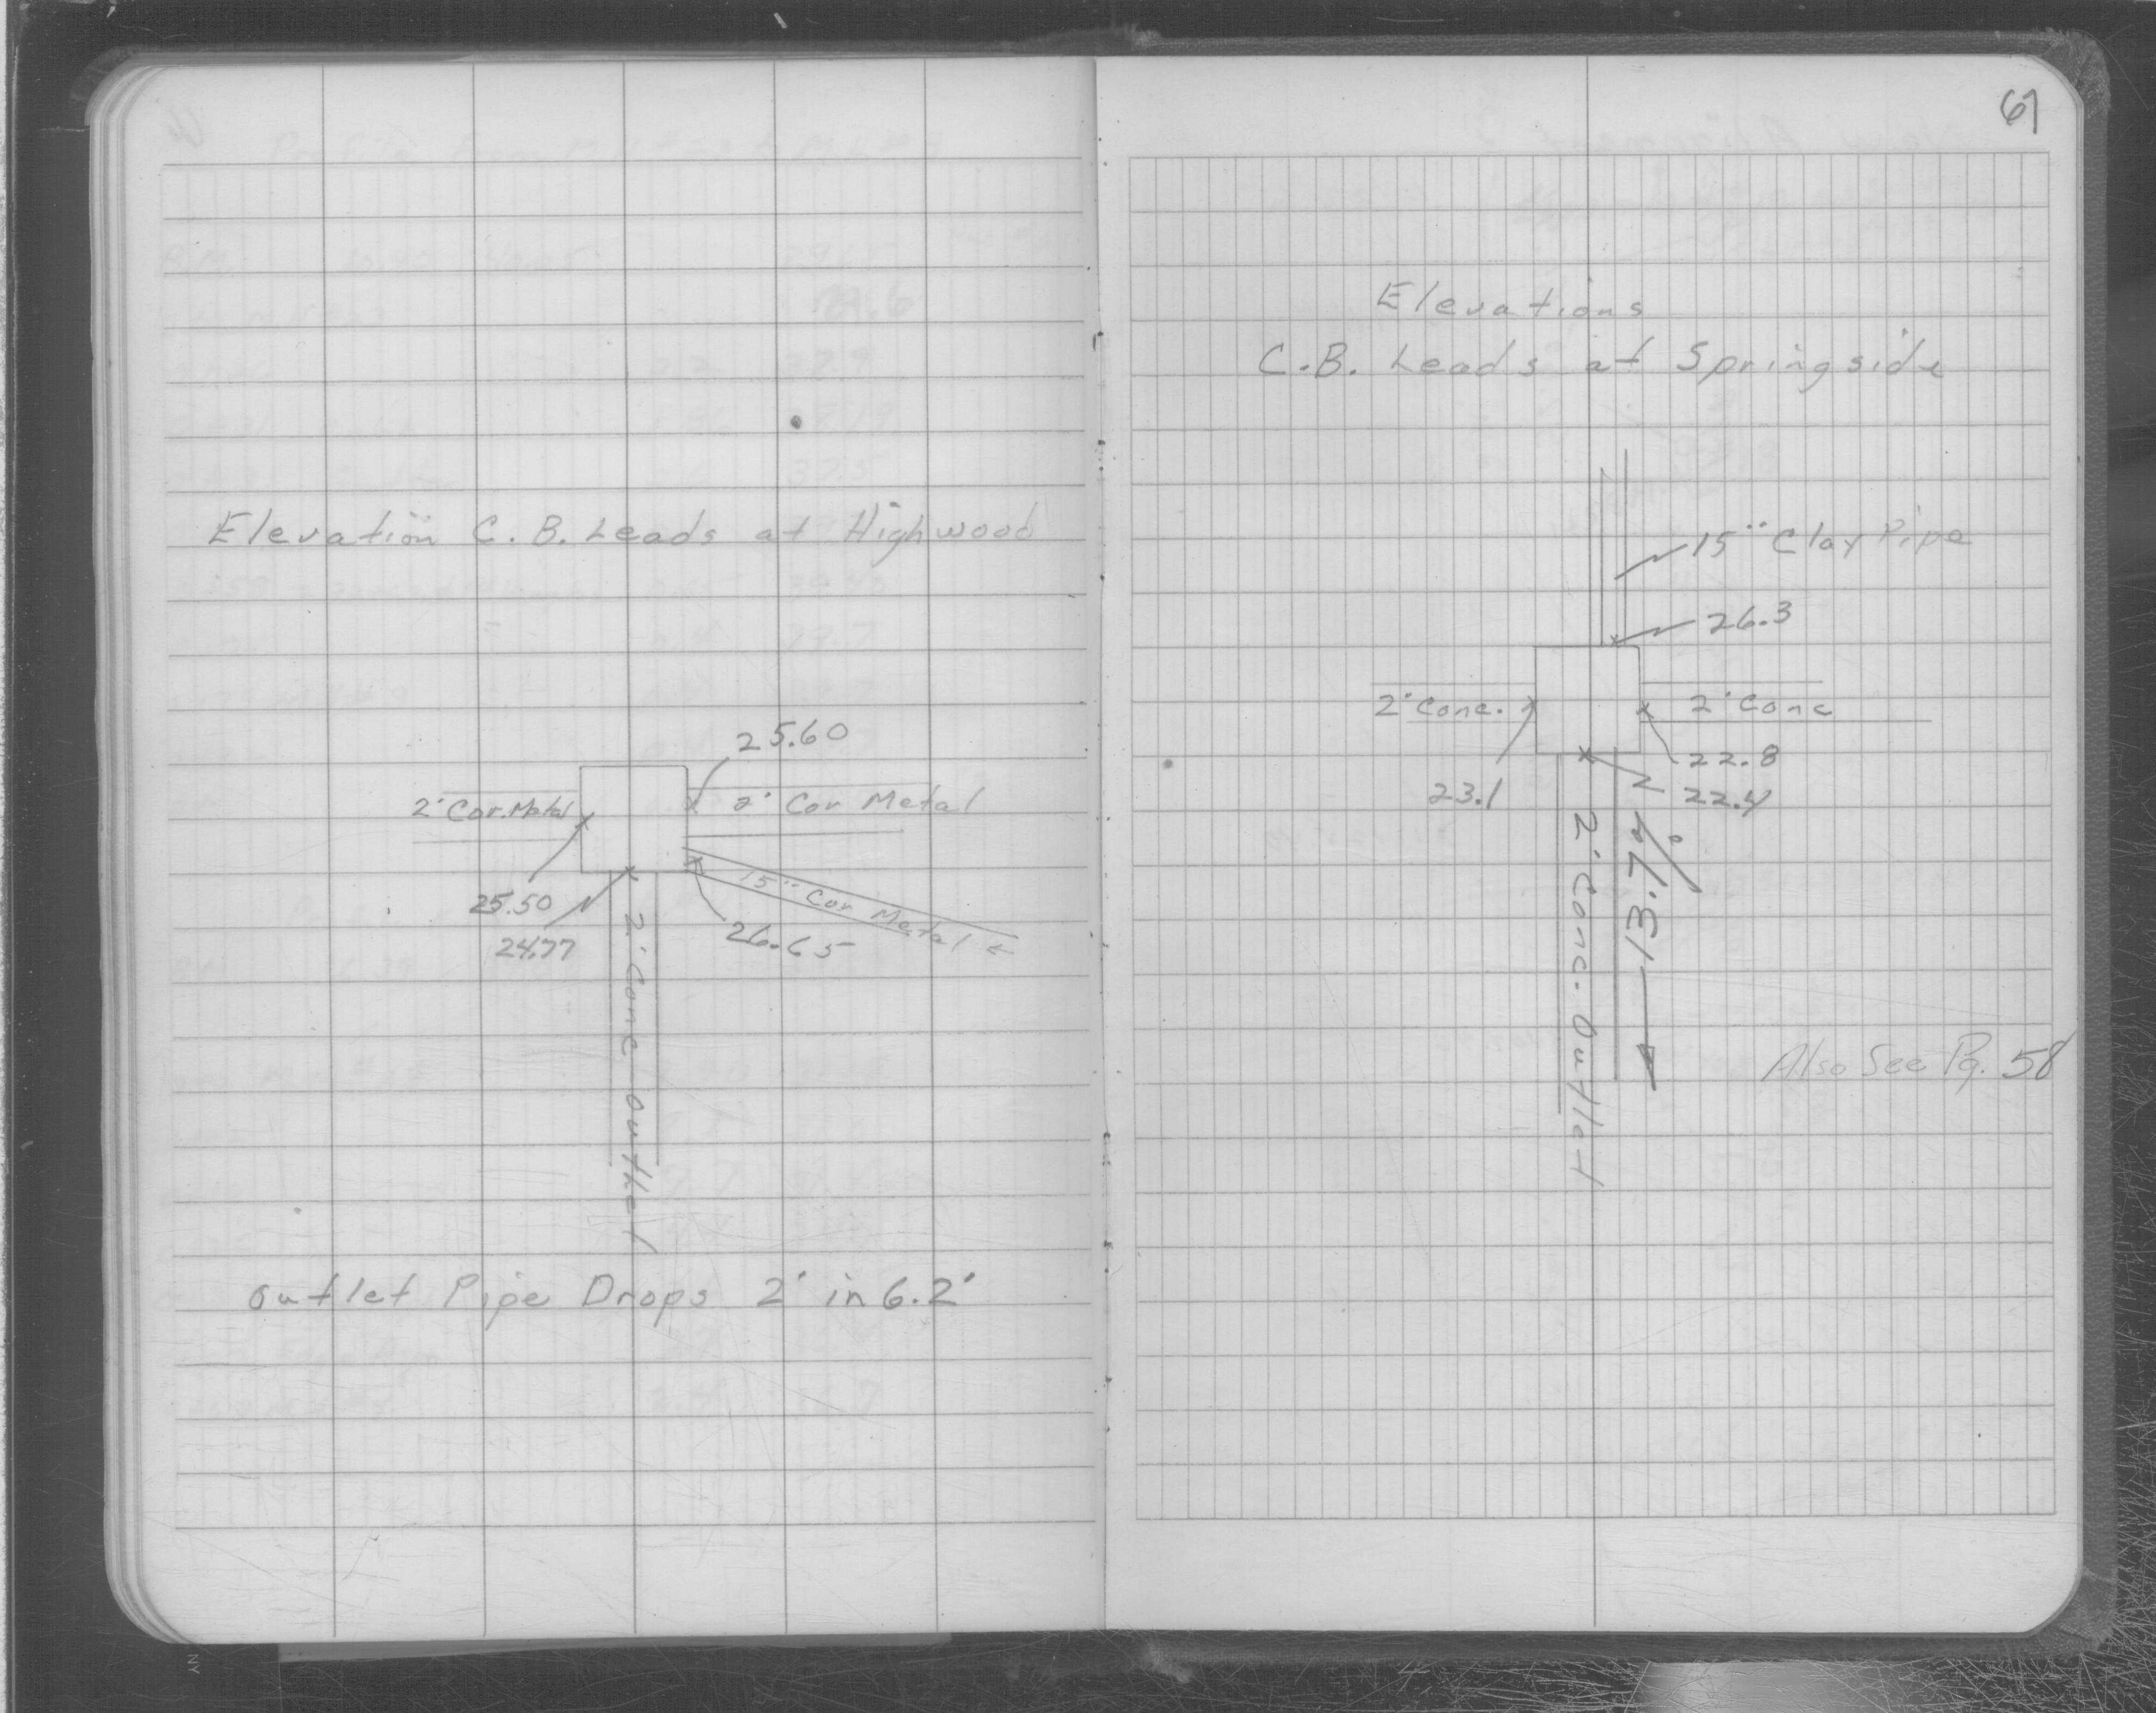 Elevation C.B. Leads at Highwood
25.60
2' Cor. Metal
2' Cor Metal
15" Cor Metal ←
25.50
24.77
26.65
2' Conc outlet
outlet Pipe Drops 2' in 6.2'
67
Elevations
C.B. Leads at Springside
15" Clay Pipe
26.3
2' Conc.
2' Conc
22.8
23.1
22.4
2' Conc. Outlet
13.7%
Also See Pg. 58
NY